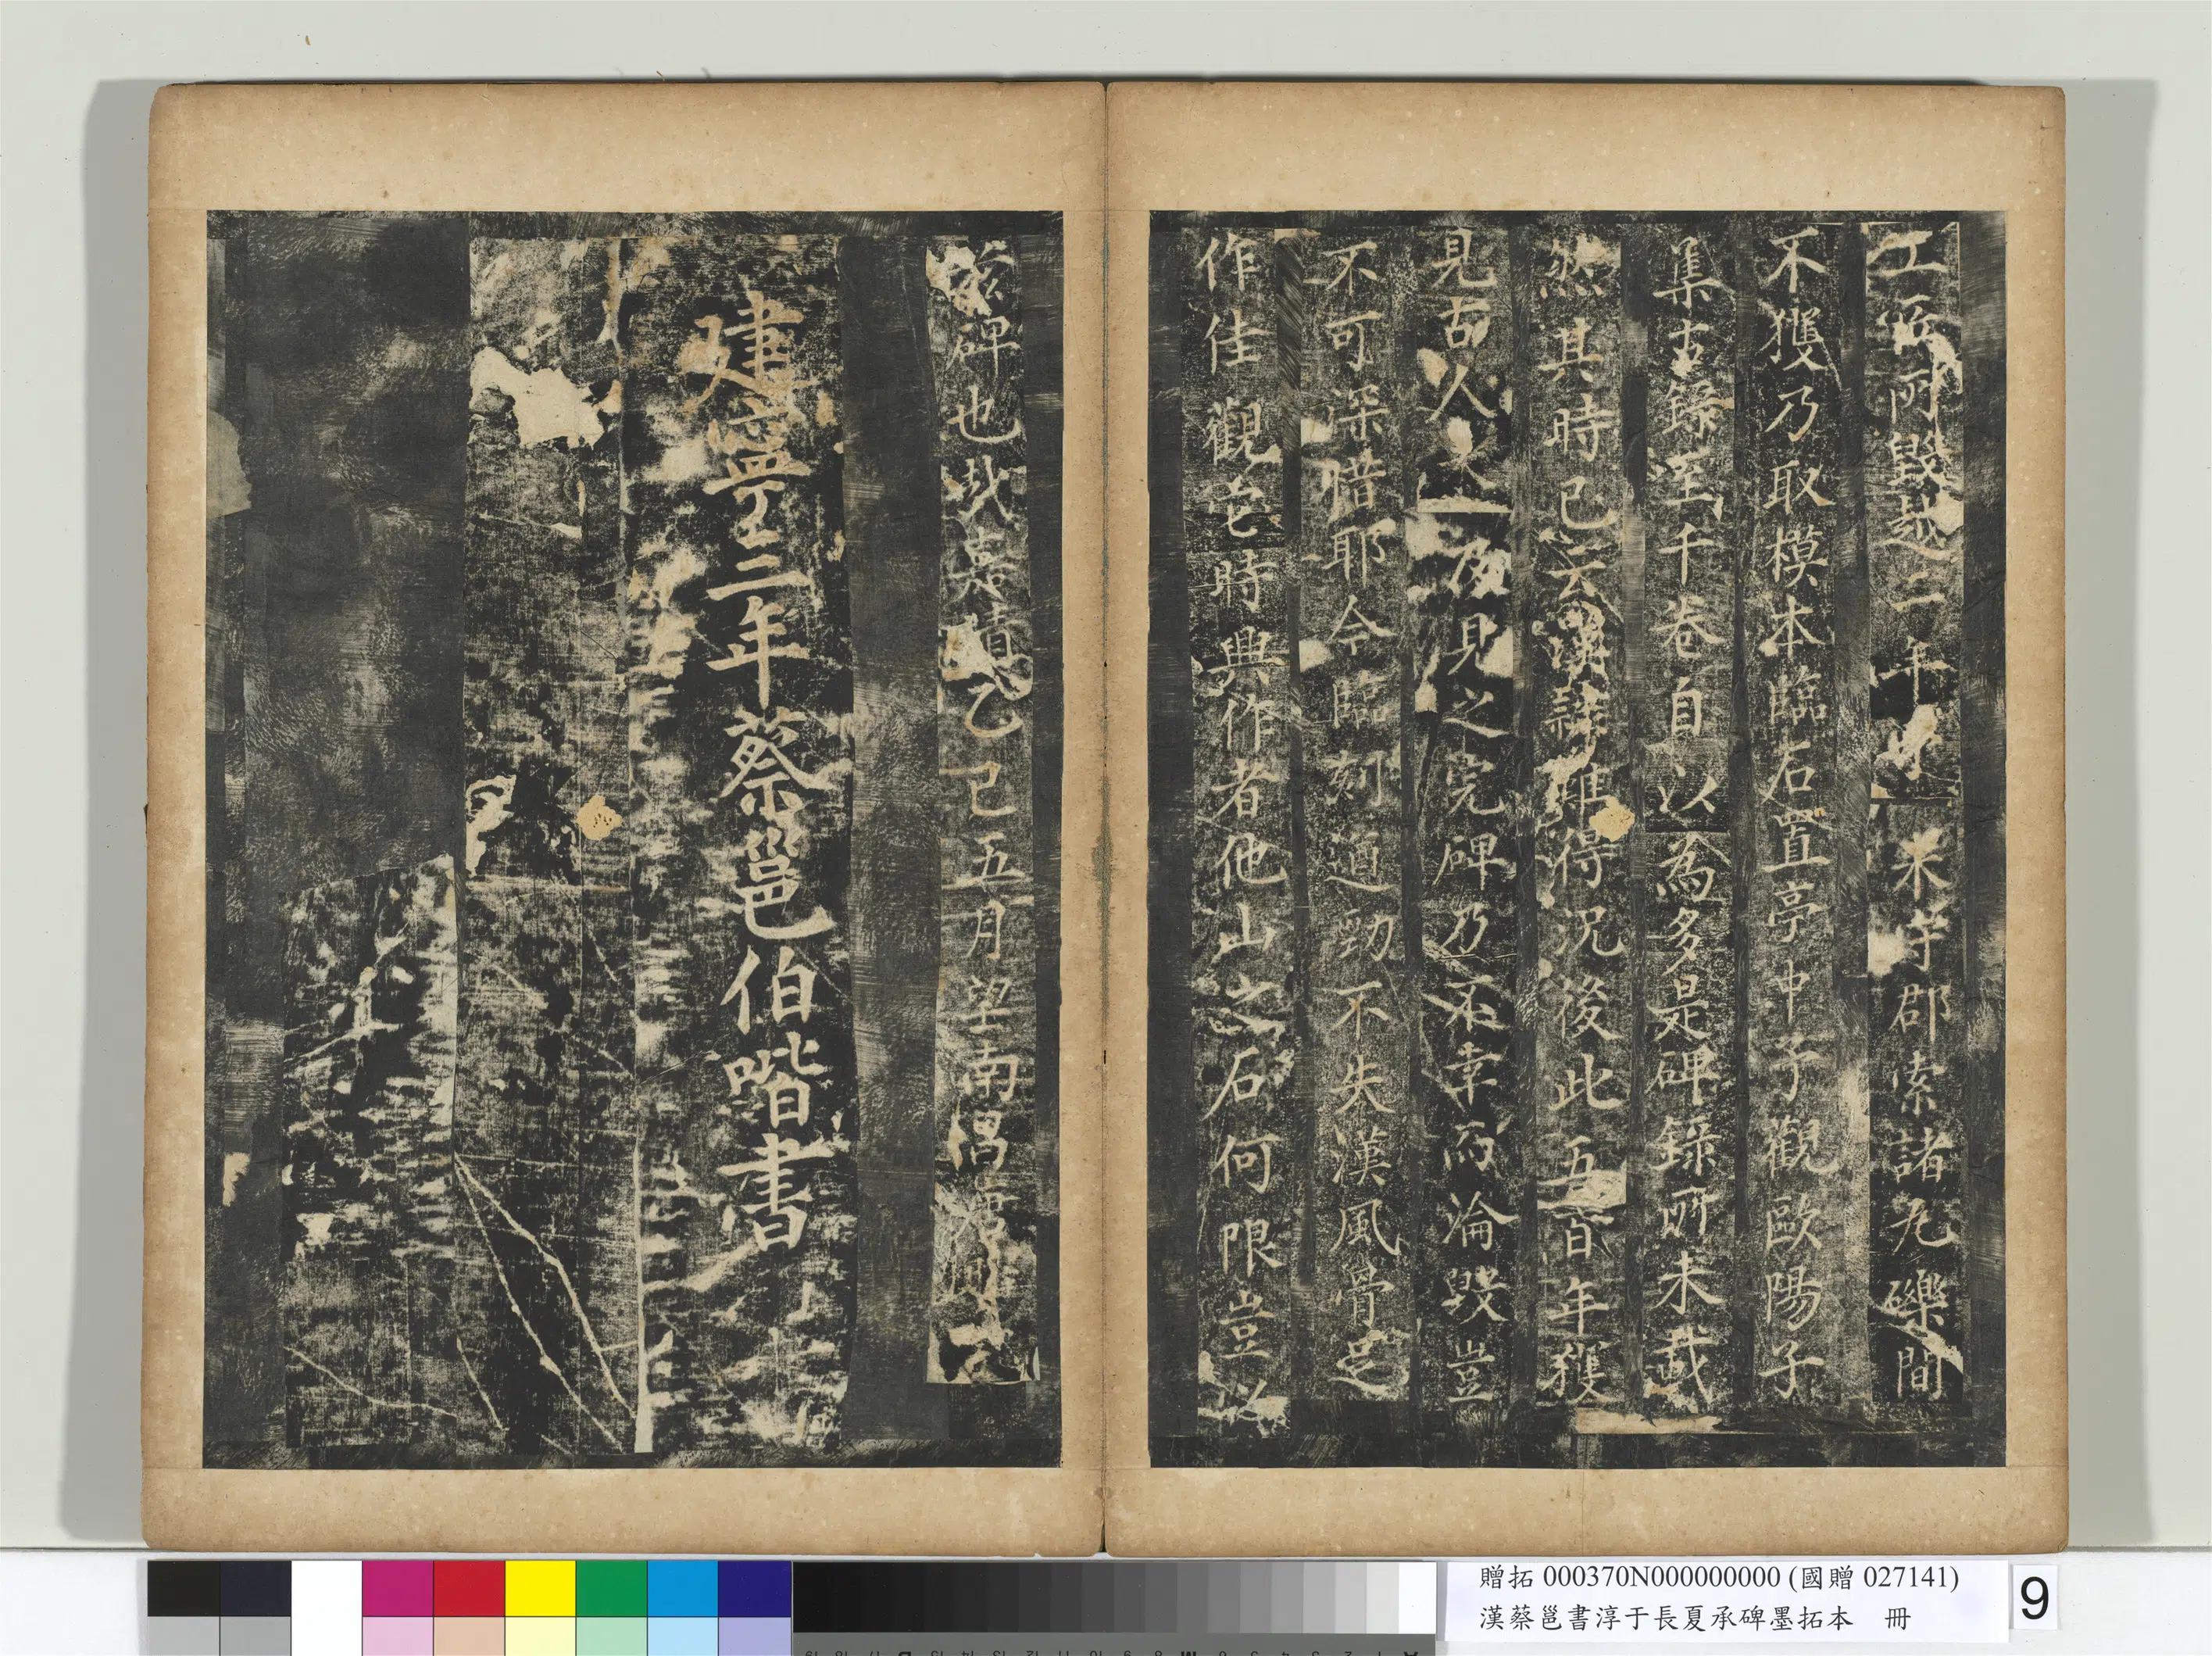 工所毀越二年
朱守郡索諸瓦礫間
不獲乃取模本臨石置亭中予觀歐陽子
集古錄至千卷自以為多是碑錄所未載
然其時已云漢隸難得況後此五百年獲
見古人
及見之完碑乃不幸而淪毀豈
不可深惜耶今臨刻遒勁不失漢風骨足
作佳觀它時興作者他山之石何限豈以
茲碑也哉嘉靖乙巳五月望南昌
建寧三年蔡邕伯喈書
贈拓 000370N000000000 (國贈 027141)
漢蔡邕書淳于長夏承碑墨拓本 冊
9